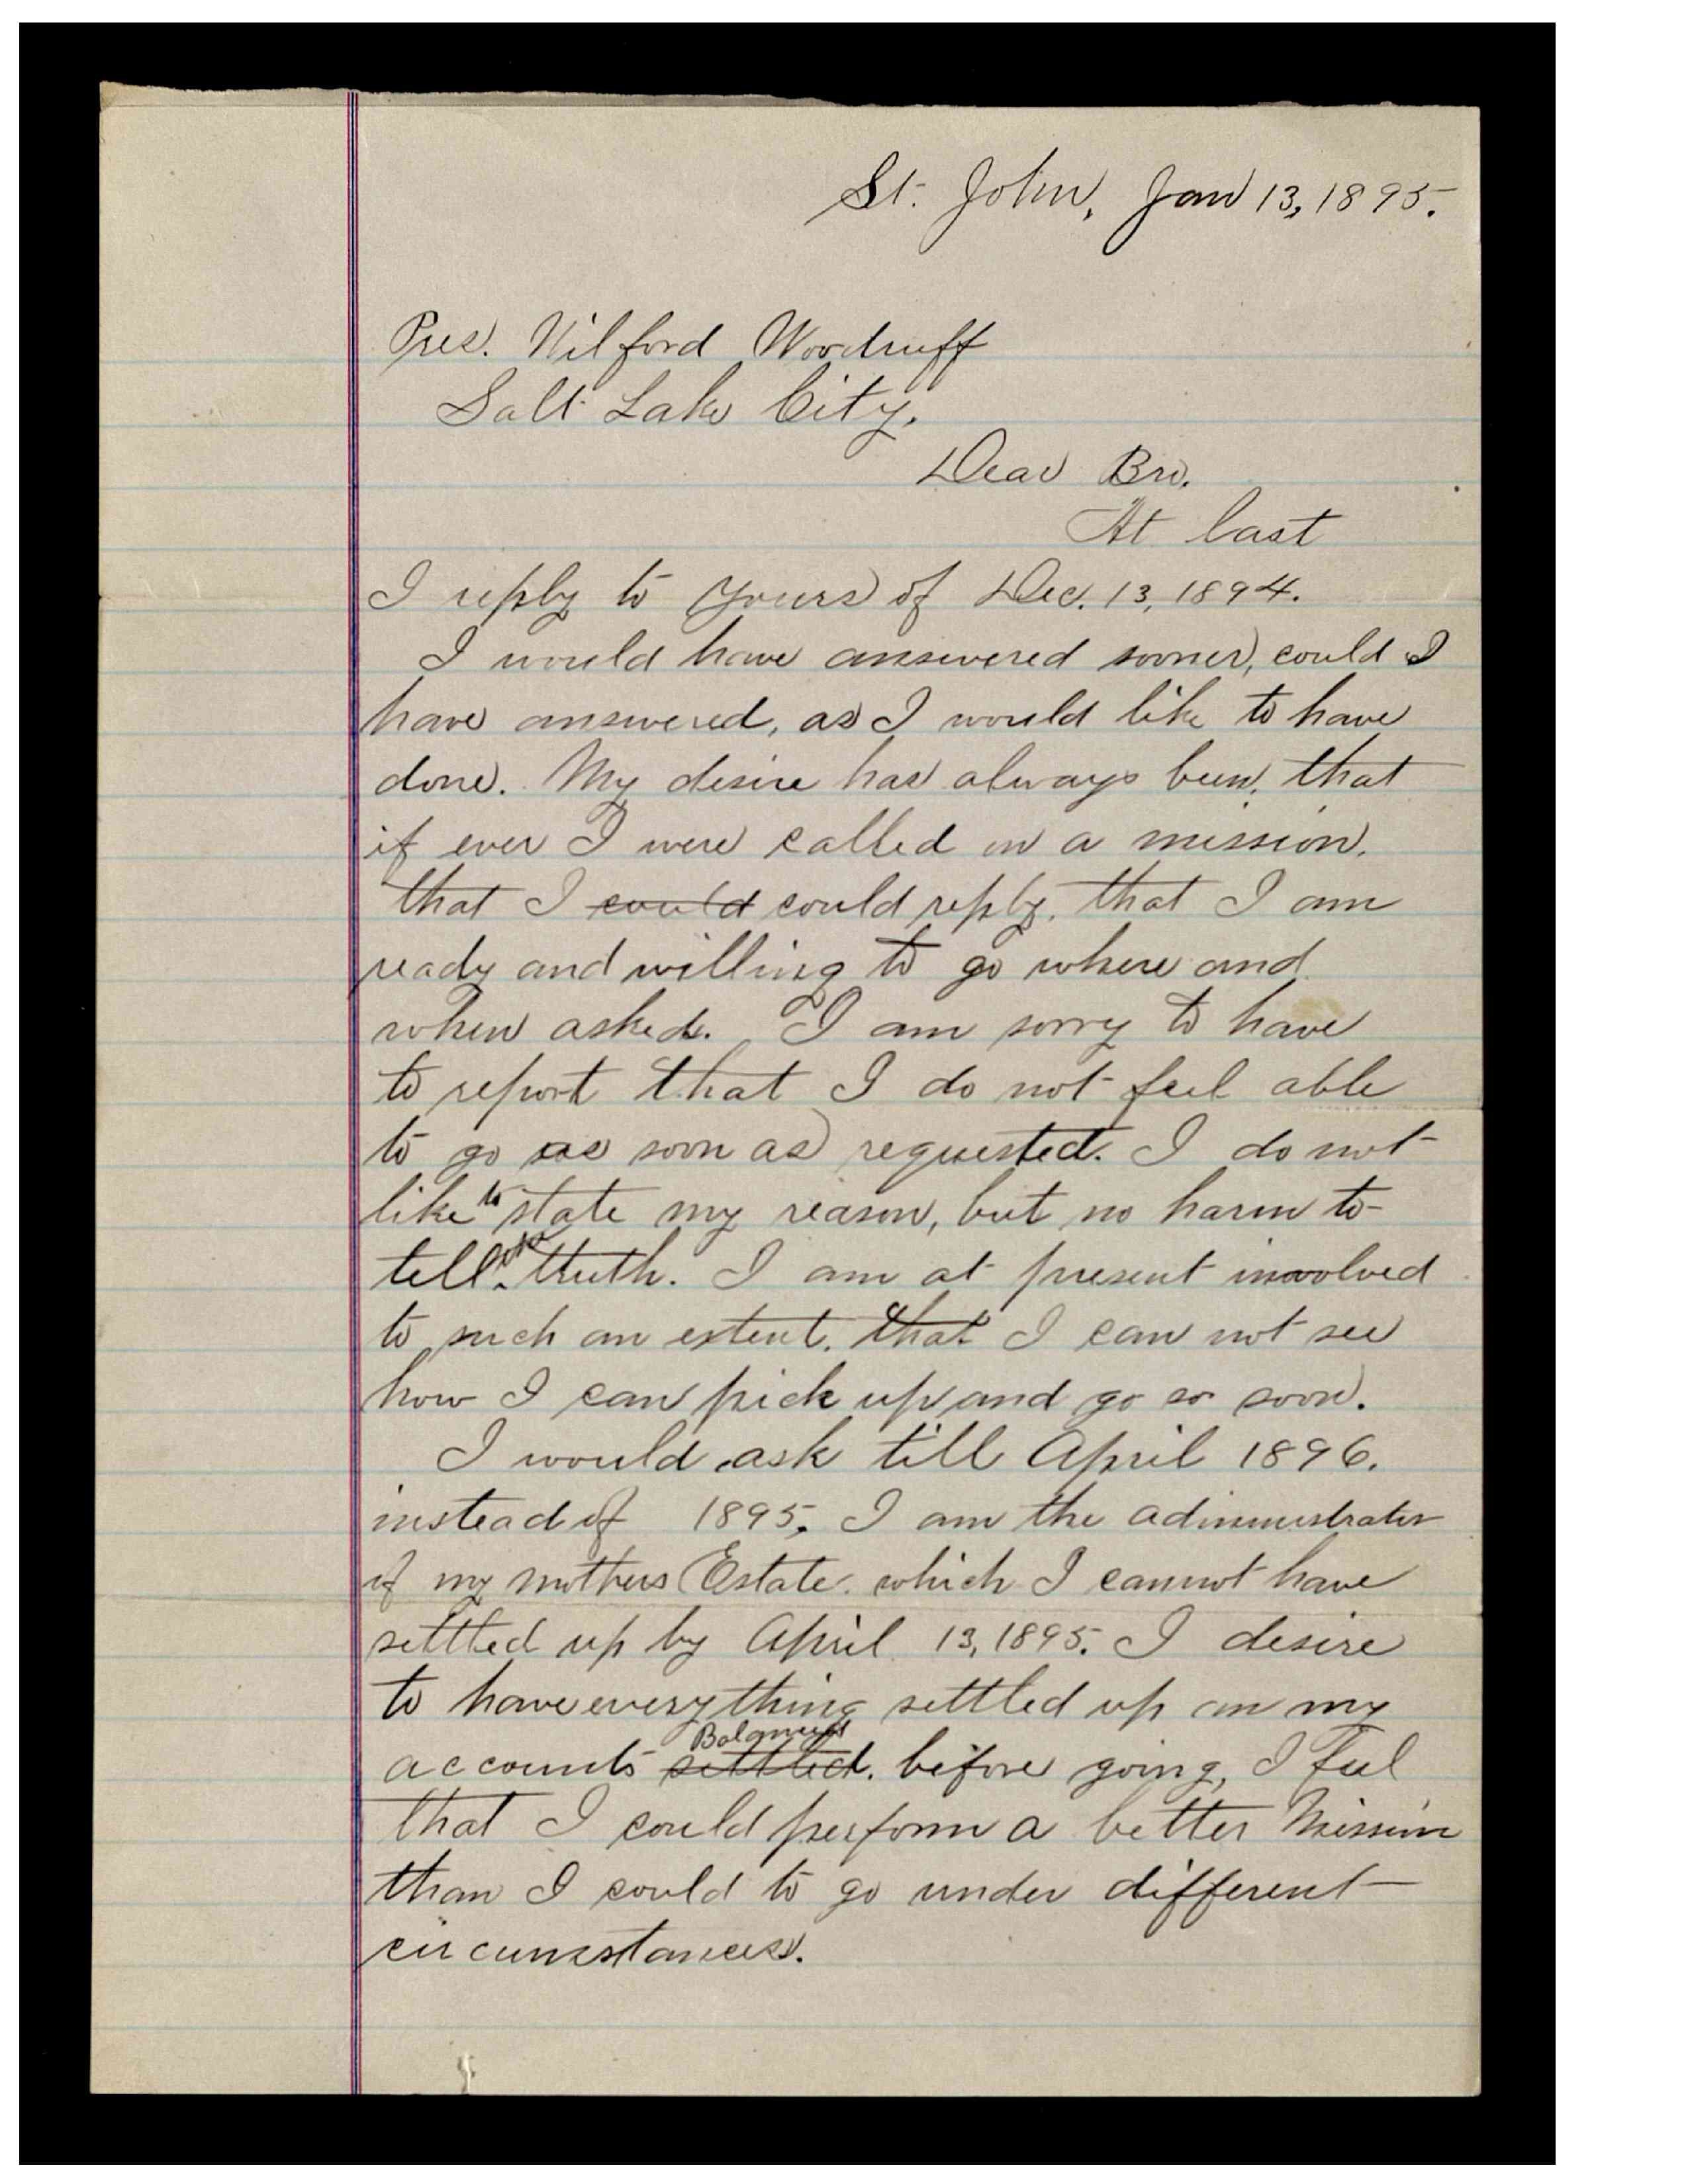 St. John, Jan 13, 1895.
Pres. Wilford Woodruff
Salt Lake City.
Dear Bro.
At last
I reply to yours of Dec. 13, 1894.
I would have answered sooner, could I
have answered, as I would like to have
done. My desire has always been, that
if ever I were called on a mission,
that I could could reply, that I am
ready and willing to go where and
when asked. I am sorry to have
to report that I do not feel able
to go as soon as requested. I do not
like to state my reason, but no harm to
tell the truth. I am at present involved
to such an extent, that I can not see
how I can pick up and go so soon.
I would ask till April 1896.
instead of 1895. I am the administrator
of my mothers Estate. which I cannot have
settled up by April 13, 1895. I desire
to have everything settled up an my
accounts settled. Balanced before going, I feel
that I could perform a better Mission
than I could to go under different
circumstances.